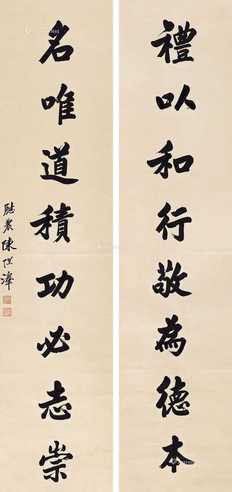 禮以和行敬為德本
名唯道積功必志崇
農陳